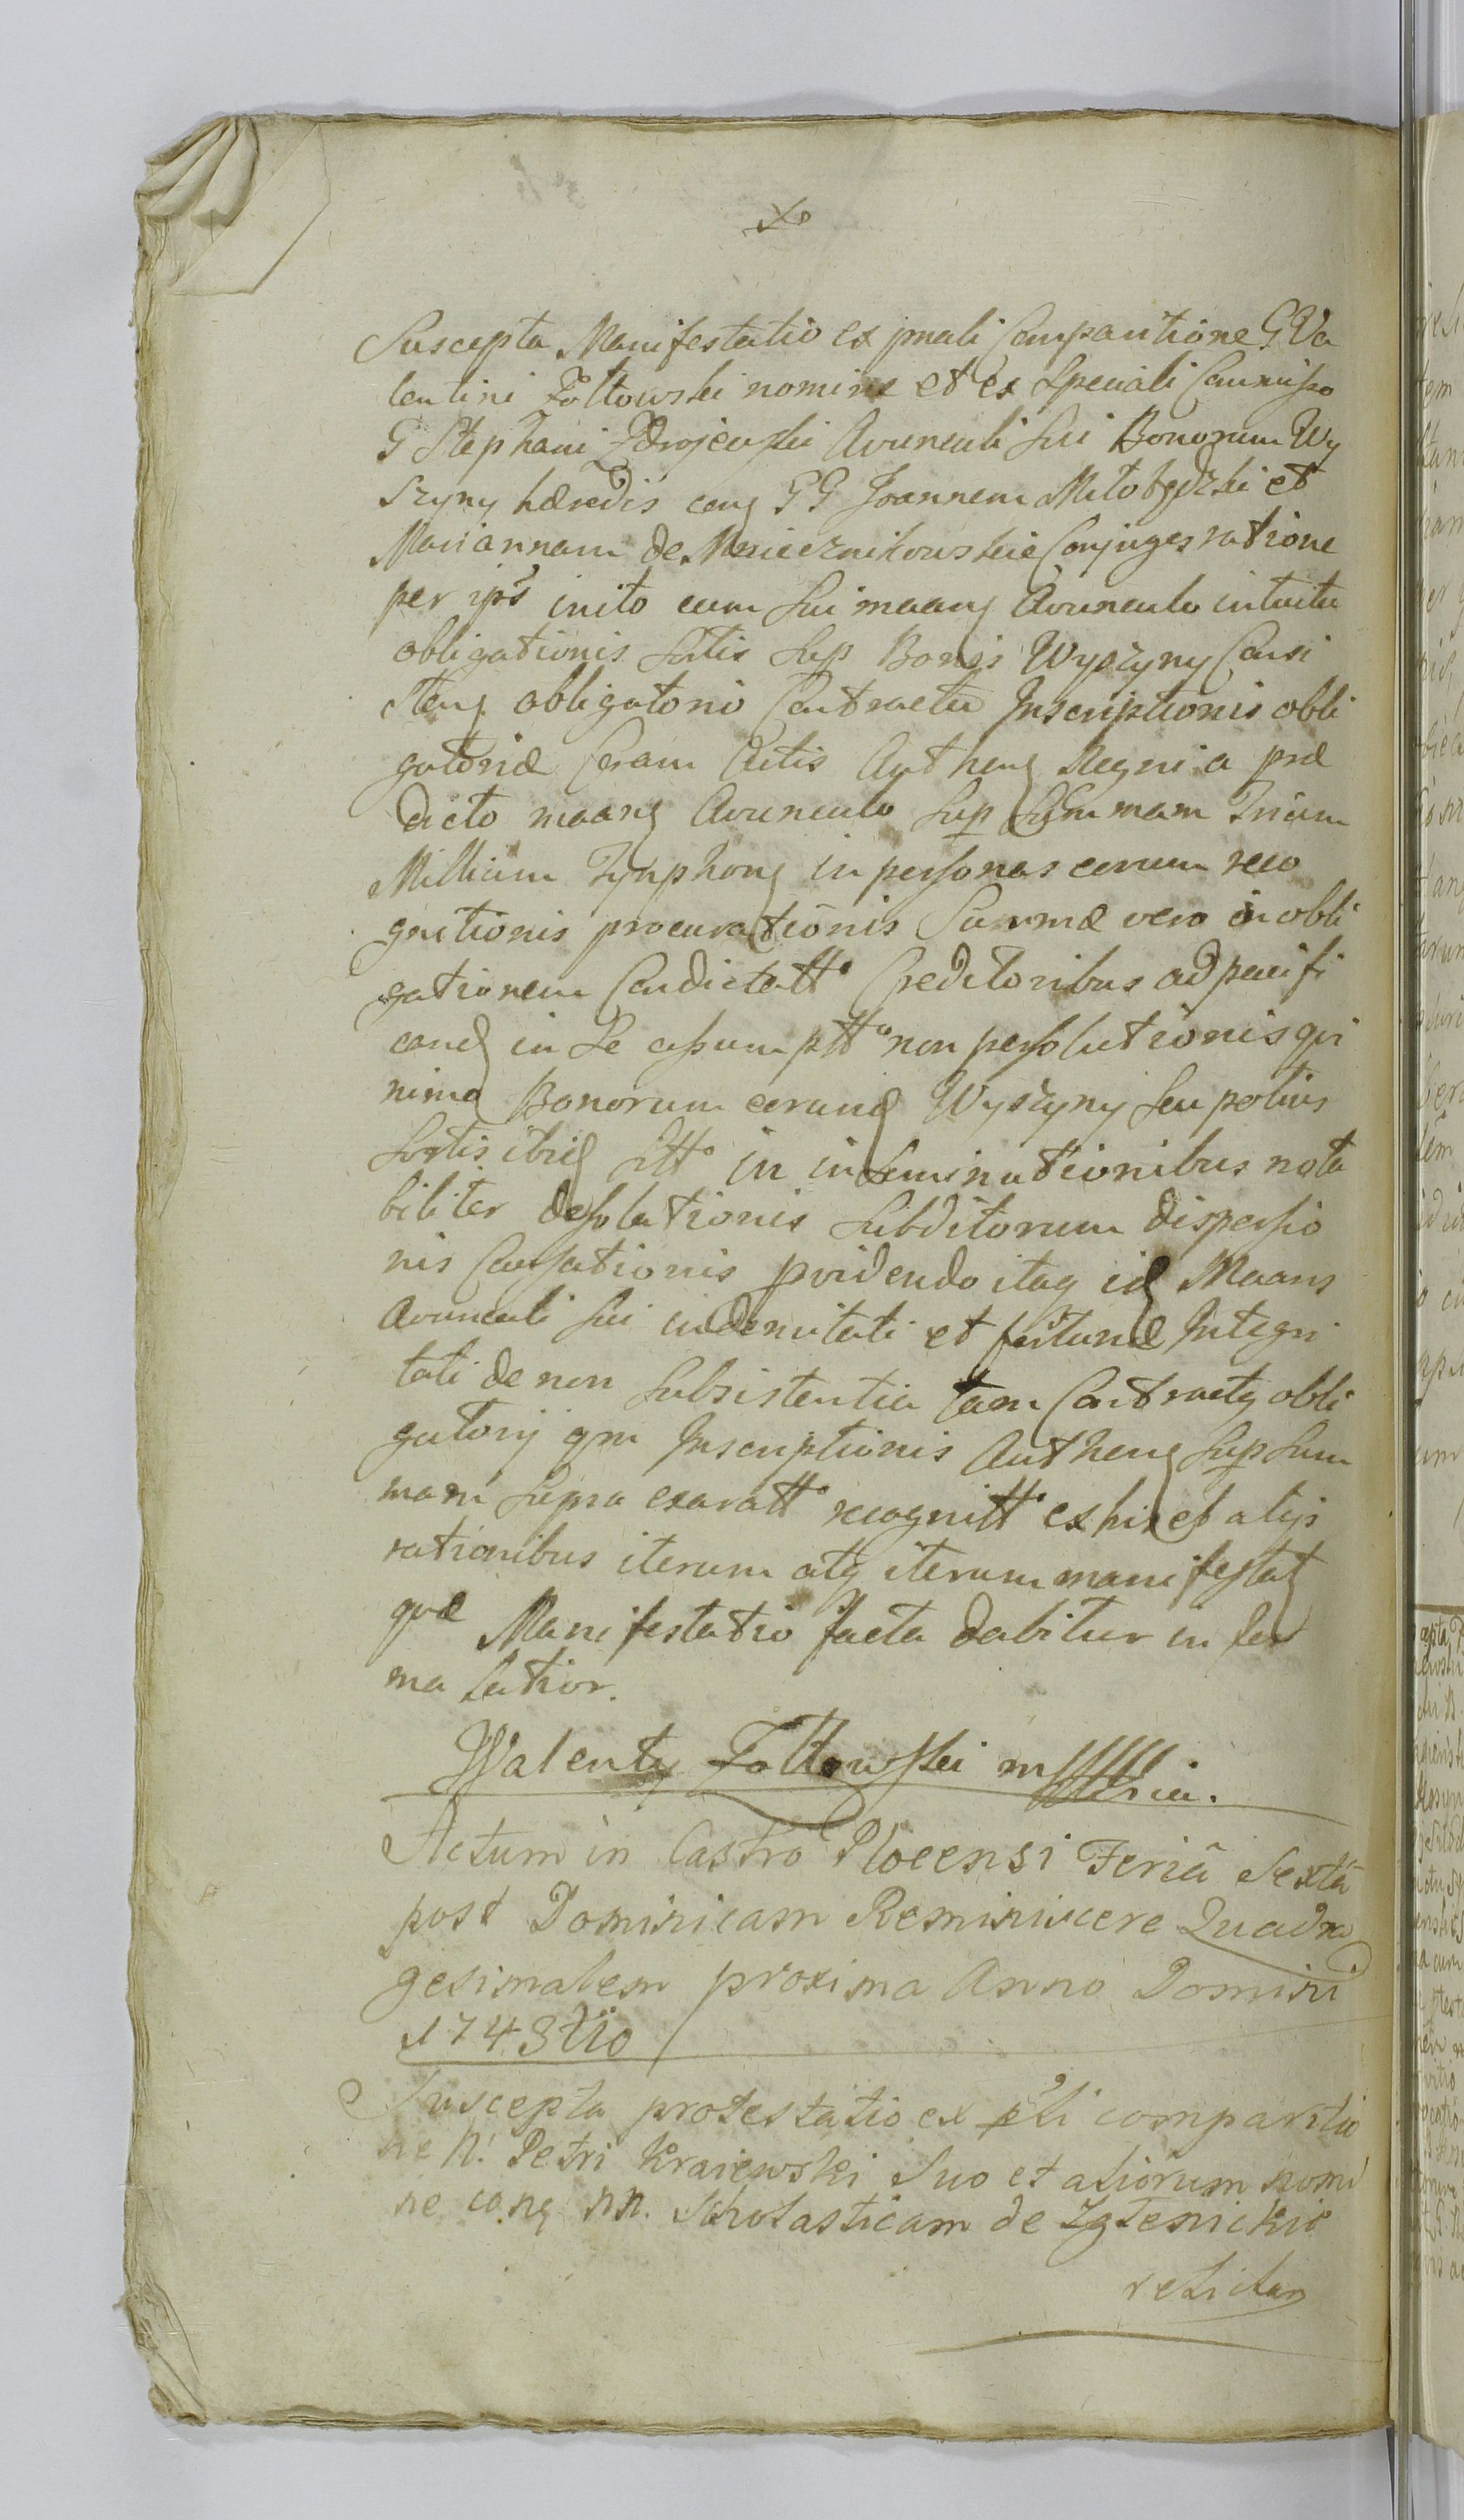 Suscepta Manifestatio ex pnali Comparitione G Va
lentini Zołtowski nomine et ex Speciali Commisso
G Stephani Zdrojewski Avunculi sui Bonorum Wy
szyny hæredis cong GG Joannem Miłobędzki et
Mariannam de Mieicznikowskie Conjuges ratione
per ipś inito cum sui maang Avunculo intuitu
obligationis sortis sup Bonis Wyszyny Consi
steng obligatorio Contractu Inscriptionis obli
gatoriæ Coram Actis Autheng Regni a præ
dicto maang Avunculo sup Summam Trium
Millium Tynphong in personas eorum reco
gnitionis procurationis Summæ vero in obli
gationem Condictatt Creditoribus ad pacifi
cand in se assumptt non persolutionis qvi
nimo Bonorum eorund Wyszyny seu potius
sortis ibid sitt in inseminationibus nota
biliter desolationis subditorum dispersio
nis Causationis pvidendo itaq id Maans
Avunculi sui indemnitati et fortunæ Integri
tati de non subsistentia tam Contractg obli
gatorij qm Inscriptionis Autheng sup sum
mam supra exaratt recognitt ex his et alijs
rationibus iterum atq iterum manifestat
qvæ Manifestatio facta dabitur in for
ma latior.
Walenty Zołtowski m
Actum in Castro Plocensi Feriâ Sextâ
post Dominicam Reminiscere Quadra
gesimalem proxima Anno Domini
1743tio
Suscepta protestatio ex pli comparitio
ne N. Petri Kraiewski suo et aliorum nomi
ne cong nn. Scholasticam de Zglenickie
relictam